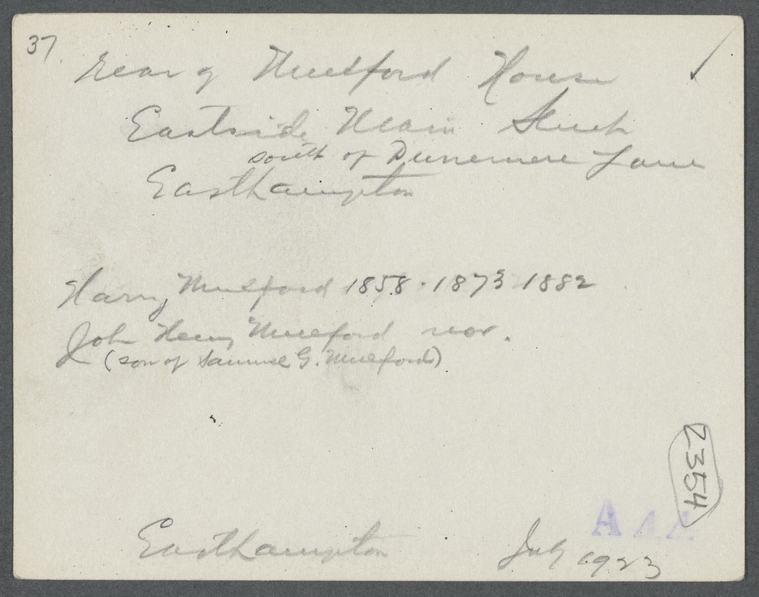 37
Rear of Mulford House
Eastside Main Street
south of Dunemere Lane
Easthampton
Harry Mulford 1858 - 1873 1882
John Henry Mulford nov.
(son of Samuel G. Mulford)
2354
A44
Easthampton July 1923